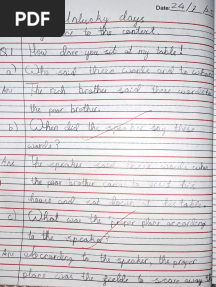 PDF
Date: 24/
Unlucky days
to the context
Q1 How dare you sit at my table!
a) Who said these words and to
Ans The rich brother said these words to
the poor brother.
b) When did the speaker say these
words?
Ans The speaker said these words when
the poor brother came to his
house and sat down at his table.
c) What was the proper place according
to the speaker?
Ans According to the speaker, the proper
place was the fields to scare away the